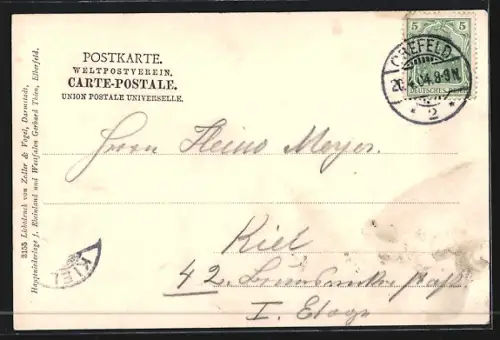 POSTKARTE.
WELTPOSTVEREIN.
CARTE-POSTALE.
UNION POSTALE UNIVERSELLE.
5 5
DEUTSCHES REICH
CREFELD
20.4.04.8-9N.
* 2 *
Herrn Heino Meyer.
Kiel
42.
I. Etage
KIEL
3155 Lichtdruck von Zedler & Vogel, Darmstadt.
Hauptniederlage f. Rheinland und Westfalen Gerhard Thien, Elberfeld.